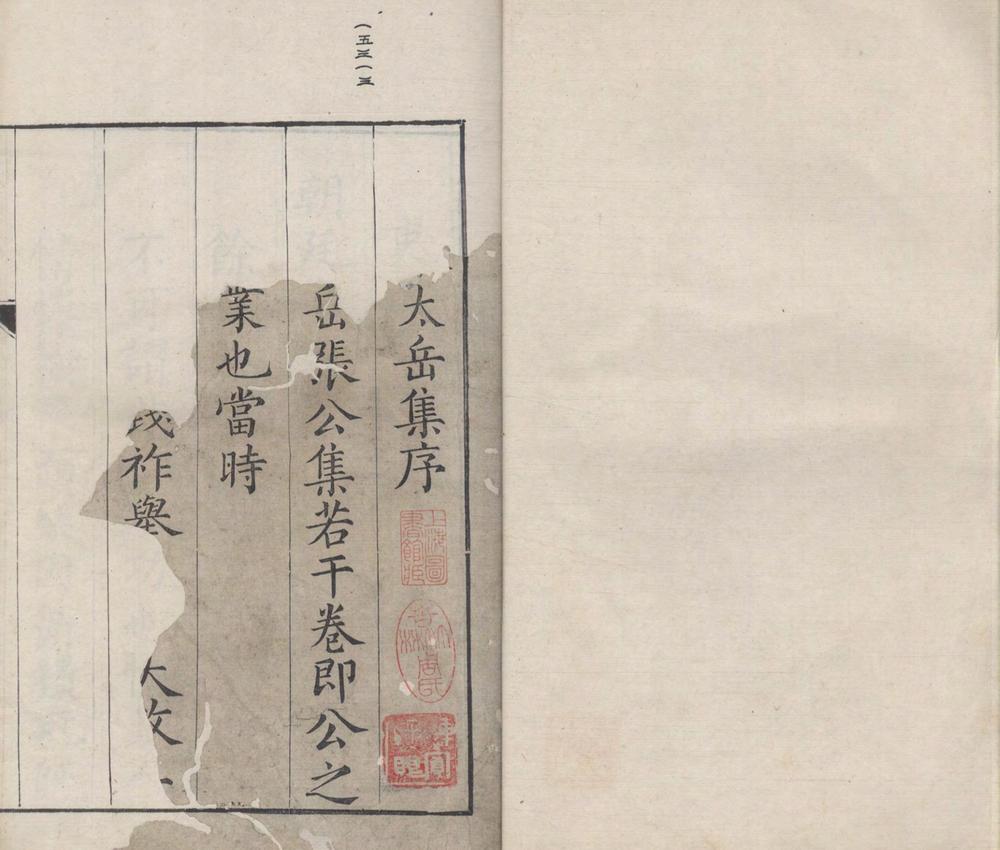 太岳集序
岳張公集若干卷即公之
業也當時
祚舉
大政
上海圖書館藏